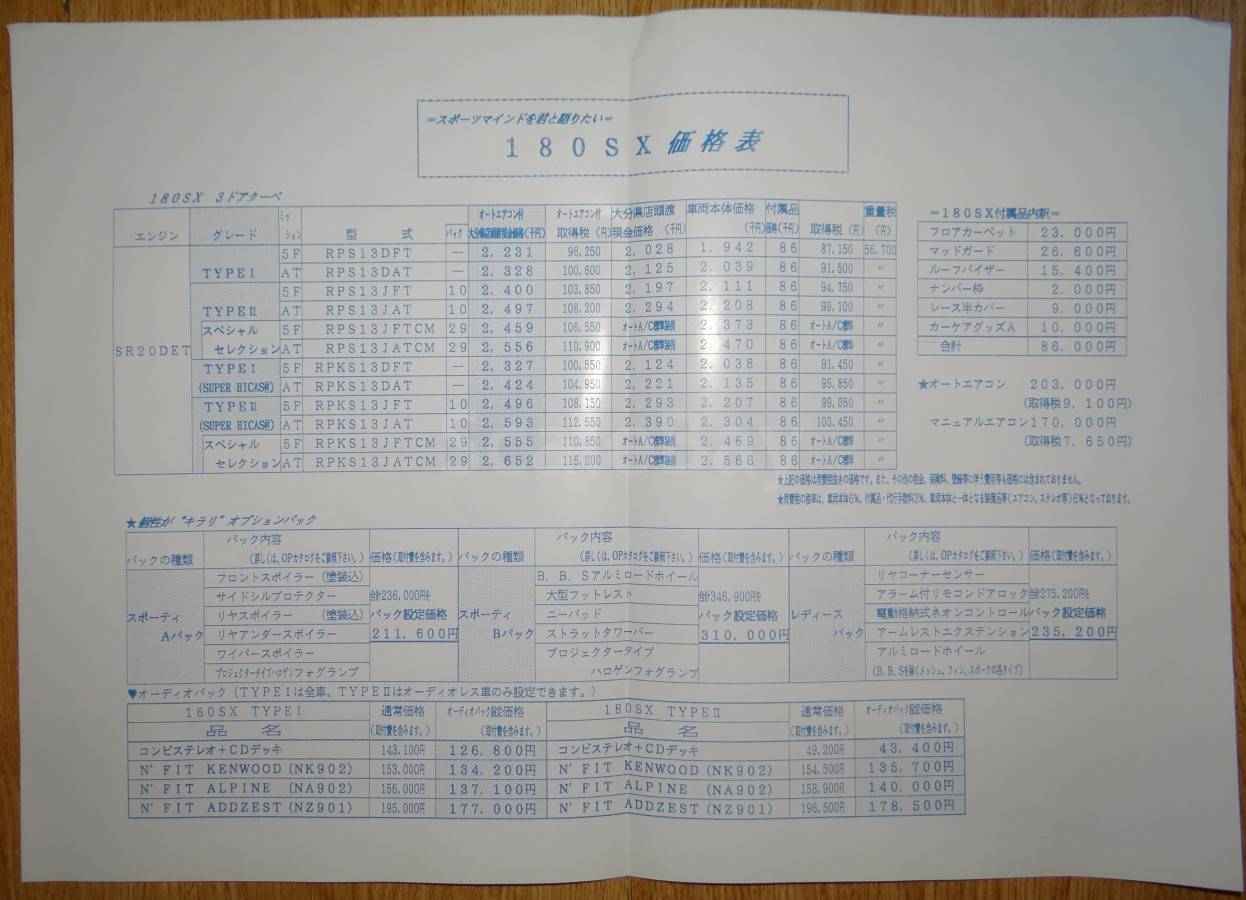 =スポーツマインドを君と語りたい=
180SX 価格表
180SX 3ドアクーペ
エンジン グレード ミッション 型式 パック オートエアコン付 大分県店頭渡現金価格(千円) オートエアコン付 取得税(円) 大分県店頭渡 現金価格(千円) 車両本体価格(千円) 付属品 価格(千円) 取得税(円) 重量税(円)
SR20DET
TYPEⅠ 5F RPS13DFT — 2,231 96,250 2,028 1,942 86 87,150 56,700
AT RPS13DAT — 2,328 100,600 2,125 2,039 86 91,500 〃
TYPEⅡ 5F RPS13JFT 10 2,400 103,850 2,197 2,111 86 94,750 〃
AT RPS13JAT 10 2,497 108,200 2,294 2,208 86 99,100 〃
スペシャル 5F RPS13JFTCM 29 2,459 106,550 オートA/C標準装備 2,373 86 オートA/C標準 〃
セレクション AT RPS13JATCM 29 2,556 110,900 オートA/C標準装備 2,470 86 オートA/C標準 〃
TYPEⅠ 5F RPKS13DFT — 2,327 100,550 2,124 2,038 86 91,450 〃
(SUPER HICAS付) AT RPKS13DAT — 2,424 104,950 2,221 2,135 86 95,850 〃
TYPEⅡ 5F RPKS13JFT 10 2,496 108,150 2,293 2,207 86 99,050 〃
(SUPER HICAS付) AT RPKS13JAT 10 2,593 112,550 2,390 2,304 86 103,450 〃
スペシャル 5F RPKS13JFTCM 29 2,555 110,850 オートA/C標準装備 2,469 86 オートA/C標準 〃
セレクション AT RPKS13JATCM 29 2,652 115,200 オートA/C標準装備 2,566 86 オートA/C標準 〃
=180SX付属品内訳=
フロアカーペット 23,000円
マッドガード 26,600円
ルーフバイザー 15,400円
ナンバー枠 2,000円
レース半カバー 9,000円
カーケアグッズA 10,000円
合計 86,000円
★オートエアコン 203,000円
(取得税9,100円)
マニュアルエアコン170,000円
(取得税7,650円)
★上記の価格は消費税抜きの価格です。また、その他の税金、保険料、登録等に伴う費用等も価格には含まれておりません。
★消費税の税率は、車両本体6%、付属品・代行手数料3%、車両本体と一体となる装備品等(エアコン、ステレオ等)6%となっております。
★個性が“キラリ”オプションパック
パックの種類 パック内容 (詳しくは、OPカタログをご覧下さい。) 価格(取付費を含みます。)
スポーティ Aパック
フロントスポイラー(塗装込)
サイドシルプロテクター
リヤスポイラー (塗装込)
リヤアンダースポイラー
ワイパースポイラー
プロジェクタータイプハロゲンフォグランプ
合計236,000円を
パック設定価格
211,600円
パックの種類 パック内容 (詳しくは、OPカタログをご覧下さい。) 価格(取付費を含みます。)
スポーティ Bパック
B.B.Sアルミロードホイール
大型フットレスト
ニーパッド
ストラットタワーバー
プロジェクタータイプ
ハロゲンフォグランプ
合計346,900円を
パック設定価格
310,000円
パックの種類 パック内容 (詳しくは、OPカタログをご覧下さい。) 価格(取付費を含みます。)
レディース パック
リヤコーナーセンサー
アラーム付リモコンドアロック
電動格納式ネオンコントロール
アームレストエクステンション
アルミロードホイール
(B.B.Sを除くメッシュ、フィン、スポークの各タイプ)
合計275,200円を
パック設定価格
235,200円
♥オーディオパック(TYPEⅠは全車、TYPEⅡはオーディオレス車のみ設定できます。)
180SX TYPEⅠ 通常価格 オーディオパック設定価格 180SX TYPEⅡ 通常価格 オーディオパック設定価格
品名 (取付費を含みます。) (取付費を含みます。) 品名 (取付費を含みます。) (取付費を含みます。)
コンビステレオ+CDデッキ 143,100円 126,800円 コンビステレオ+CDデッキ 49,200円 43,400円
N'FIT KENWOOD(NK902) 153,000円 134,200円 N'FIT KENWOOD(NK902) 154,500円 135,700円
N'FIT ALPINE (NA902) 156,000円 137,100円 N'FIT ALPINE (NA902) 158,900円 140,000円
N'FIT ADDZEST(NZ901) 195,000円 177,000円 N'FIT ADDZEST(NZ901) 196,500円 178,500円